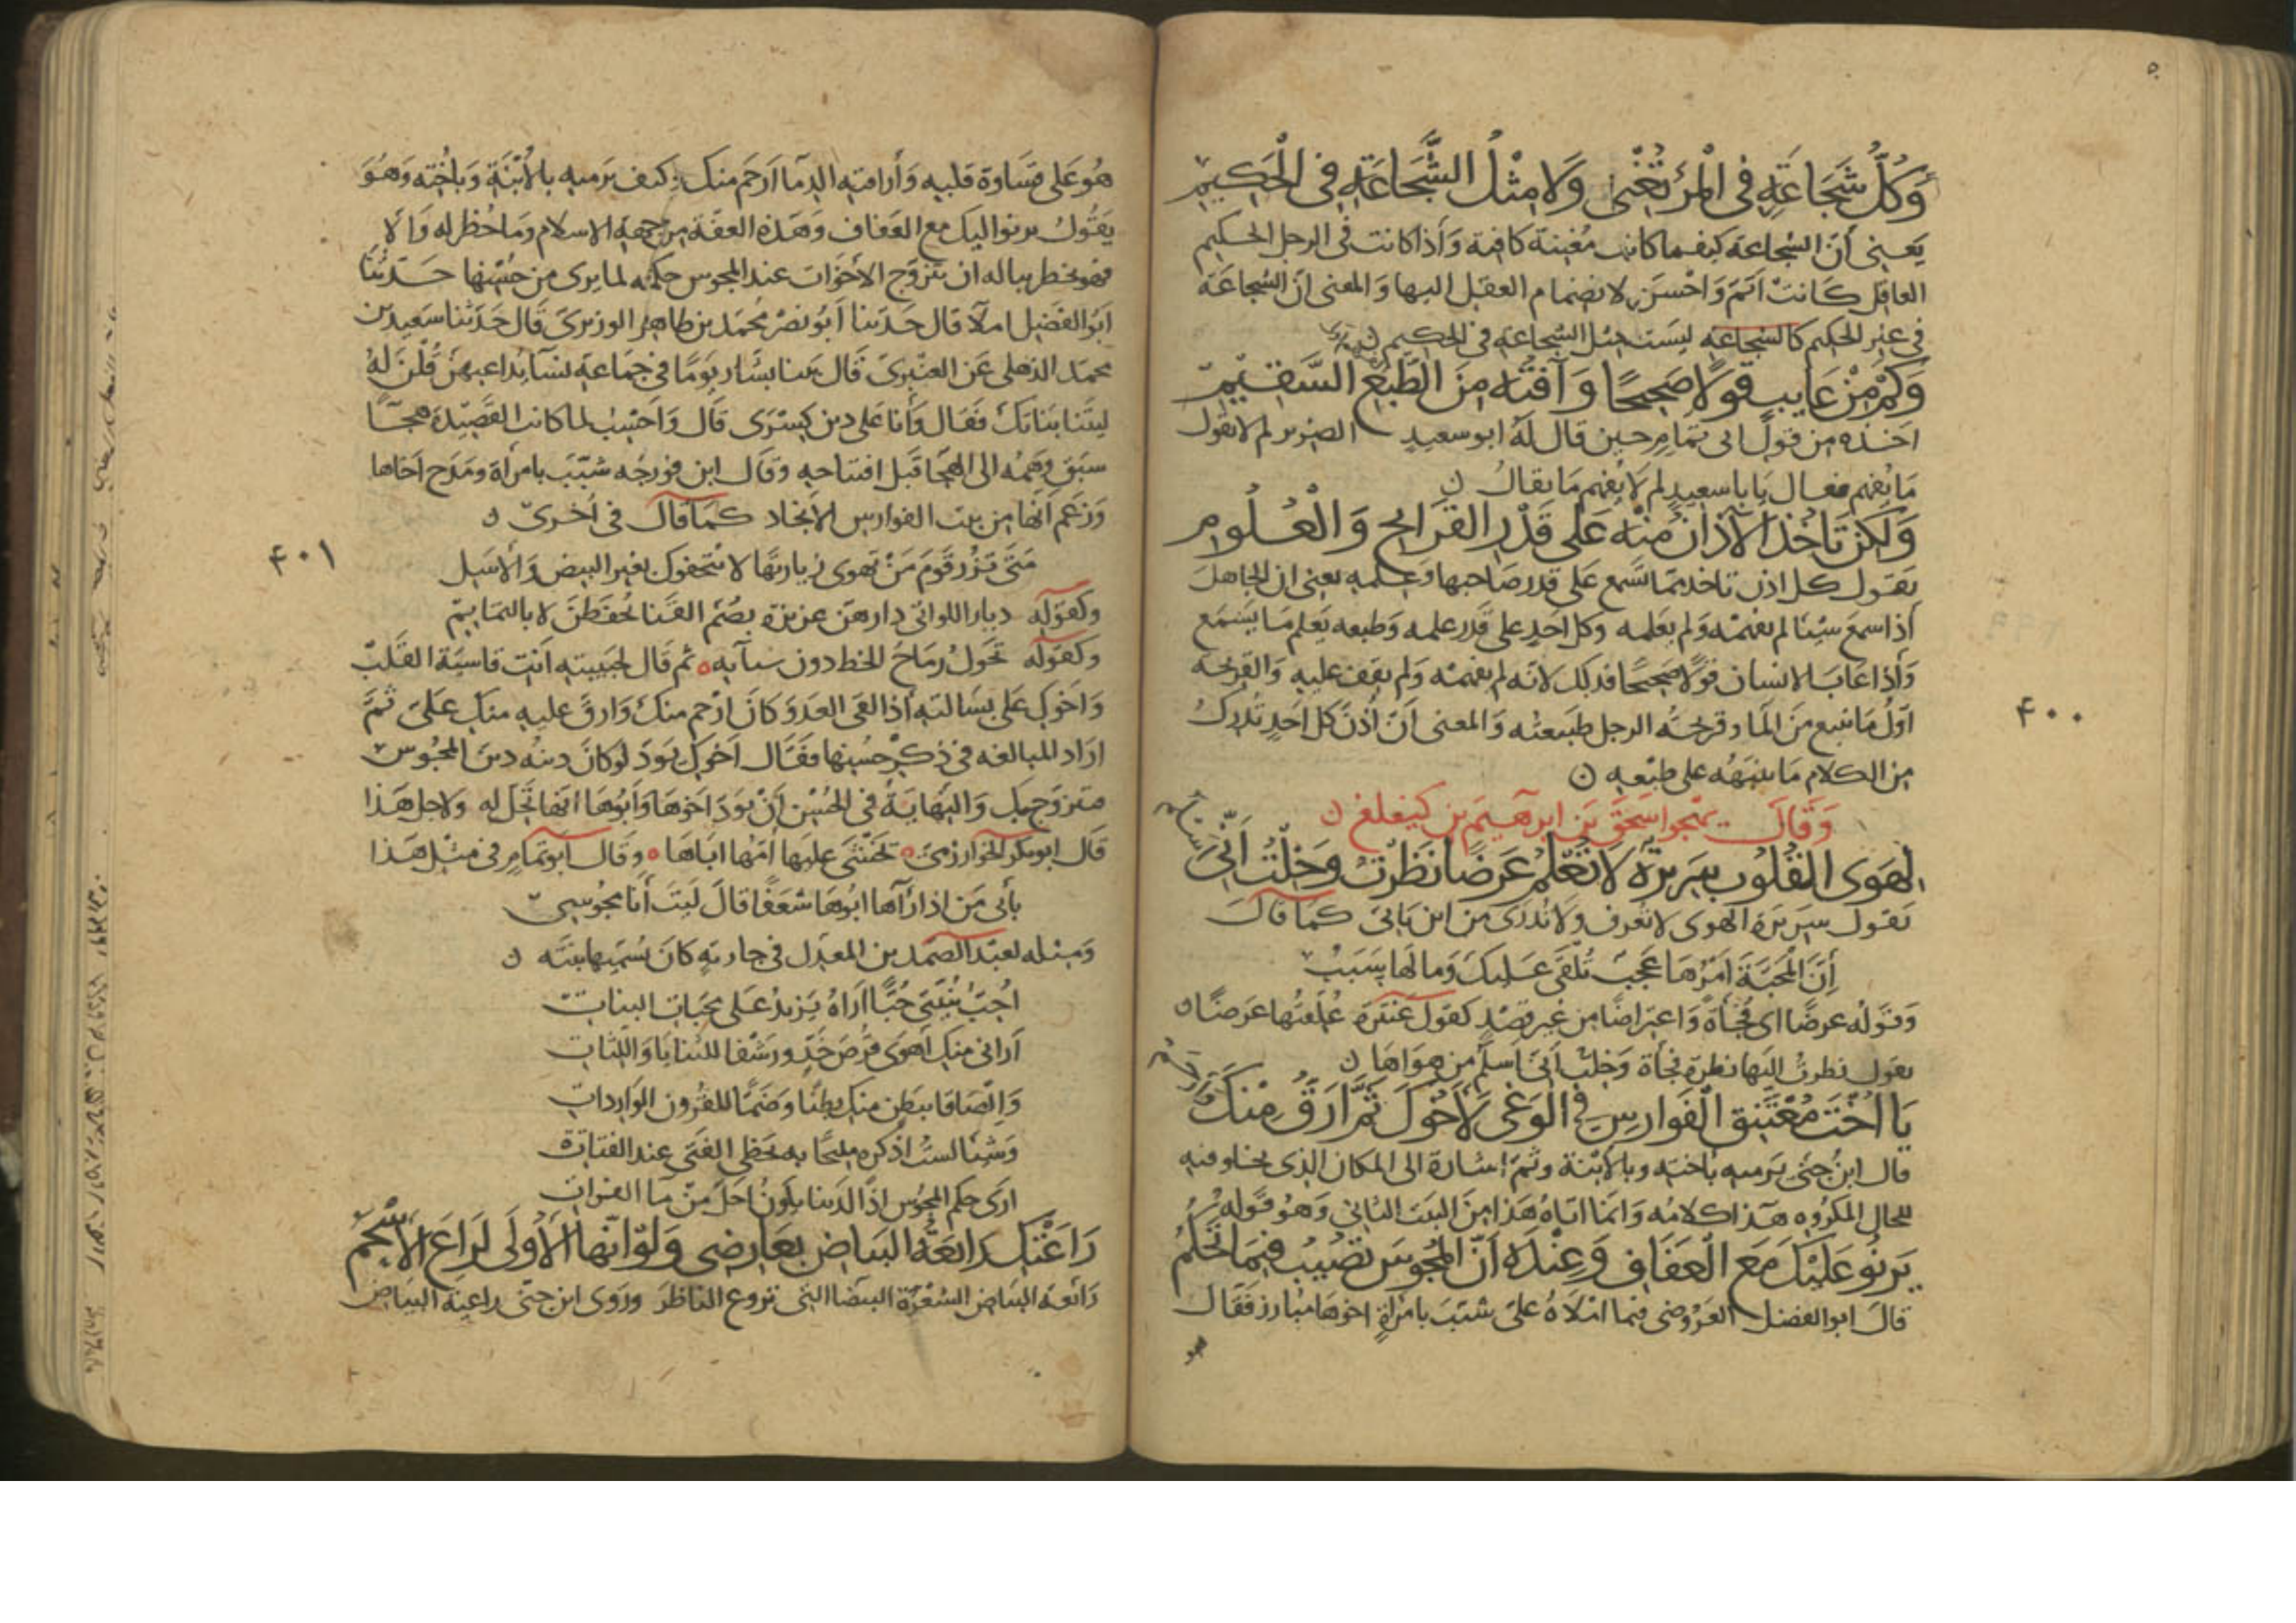 وَكُلُّ شَجَاعَةٍ فى الْمَرْءِ تُغْنِى وَلَا مِثْلُ الشَّجَاعَةِ فى الْحَكِيمِ
يَعنى أنّ الشجاعة كيفما كانت مُغنية كافية وَأذا كانت فى الرجل الحكيم
العاقل كَانتْ أتمّ وَاحْسَن لانضمام العقل اليها وَالمعنى انّ الشجاعَة
فى غير الحكيم كالشجاعه ليسَت مثل الشجاعة فى الحكيم ن
وَكَمْ مِنْ عَايِبٍ قَوْلًا صَحِيحًا وَآفَتُهُ مِنَ الطَّبْعِ السَّقِيْمِ
اخذه من قول ابى تمامٍ حين قال لهُ ابو سعيدٍ الضرير لم لا تقول
مَا يُفهم فقال يَا با سعيدٍ لم لَا يُفهم مَا يقالُ ن
وَلَكِنْ تَأخُذُ الْآذَانُ مِنْهُ عَلَى قَدْرِ القَرَايِحِ وَالْعُلُومِ
يقول كل اذن تاخد مما تسمع على قدر صَاحبها وَعلمه يعنى ان الجاهل
أذا سمع شيئا لم يفهمه وَلم يعلمه وكل احَدٍ على قَدر علمه وَطبعه يَعلم مَا يَسمَع
وَأذا عَابَ الانسان قوْلًا صَحيحًا فذلك لانّه لم يفهمه وَلم يقف عليه وَالقريحَة
اوّلُ مَا ينبع مِنَ المَاء وقريحَةُ الرجل طبَيعته وَالمعنى أنّ أُذنَ كل احَدٍ تُدرك
من الكلام مَا ينبّهه على طبْعه ن
وَقَالَ يهجو اسحَقَ بن ابرهيمَ بن كيغلغ ن
لِهَوَى القُلُوبِ سَرِيرَةٌ لَا تُعْلَمُ عَرَضًا نَظَرْتُ وَخِلْتُ أَنِّى
يقول سَريرَة الهوى لا تُعرف وَلَا تُدرَى من اين يَاتى كمَا قالَ
أِنَّ الْمَحَبَّةَ اَمْرُهَا عَجَبٌ تُلْقَى عَلَيكَ وَمَا لَهَا سَبَبُ
وَقوله عرضًا اى فُجأةً وَاعتراضًا من غير قصْدٍ كقول عنترة عُلّقتُها عَرضًا ن
يقول نظرتُ اليها نظرة فجأة وَخلتُ أنّى اسلم من هوَاهَا ن
يَا اُخْتَ مُعْتَنِقِ الْفَوَارِسِ فِى الْوَغَى لَأَخُوكِ ثَمَّ اَرَقُّ مِنْكِ
قال ابنُ جنّى يَرميه بأخته وبالأُبنة وثمّ اشارة الى المكان الذى يخلو فيه
للحال المكروه هَذا كلامُه وَانّما اتاهُ هَذا مِنَ البَيت الثانى وَهُو قوْله
يَرْنُو عَلَيْكَ مَعَ الْعَفَافِ وَعِنْدَهُ أَنَّ الْمَجُوسَ تُصِيْبُ فِيْمَا تَحْكُمُ
قالَ ابو الفضل العَروضى فيما امْلَاهُ علىّ شبّبَ بامْرأةٍ اخوهَا مُبارز فقالَ
٤٠٠
هُو عَلى قسَاوة قلبه وَأراقته الدمآ ارحَم منك كيف يَرميه بالأُبْنَةِ وَبأخته وَهُوَ
يَقُولُ يرنو اليك مع العَفاف وَهَذه العفّة من جهة الاسلام ومَا حُظر له وَالا
فهو يخطر بباله ان تَزوّج الأخوَات عند المجوس حكمة لما يرى من حُسْنها حَدّثنَا
ابَو الفضل املآ قال حَدّثنا أبُو نصْر مُحَمّد بن طاهر الوزيرىّ قال حَدّثنا سَعيد بن
محمّد الذهلى عَن العنْبرىّ قال بينا بشّار يَومًا فى جَماعة نسآ يُداعبهنّ قُلْنَ لهُ
ليتَنا بَنَاتكَ فقَال وَأنا عَلى دين كِسْرَى قال وَاحْسبُ لما كانت القصيدة هجآ
سبَق وَهمُه الى الهجَا قبل افتتاحه وقالَ ابن فورجُه شبّبَ بامرأة ومَدح اخَاها
وَزعَم أنّها من بيت الفوارس الانجاد كما قال فى اُخرىّ ن
مَتَى تَزُرْ قَوْمَ مَنْ تَهوَى زيارتَهَا لَا يُتحِفوكَ بغير البيض وَالأسَلِ
وكقوله ديار اللواتى دارهنّ عزيزة بصُمّ القَنا يُحْفَظنَ لا بالتمَايِمِ
وكقوله تحَولُ رِمَاحُ الخط دون سبآيه ثم قال لحَبيبته أنتِ قاسيَة القلبْ
وَاخوكِ على بسَالته أذا لقى العدوّ كانَ ارْحم منكِ وَارقّ عليه منكِ عَلىّ ثمّ
ارَاد المبالغه فى ذكر حُسْنها فقَال اخوكِ يَودّ لو كانَ دينُه دين المجُوس
فتزوّج بك وَالنّهايَةُ فى الحُسْن أنْ يَودّ اخوهَا وَأبُوهَا انّها تحَلّ له وَلاجل هَذا
قال ابو بكر الخوارزمىّ تخشَى عليهَا امّها ابَاهَا وقال ابو تمامٍ فى مثل هَذا
بأبى مَن اذا رَآها ابُوهَا شغفًا قالَ لَيتَ أنا مجُوسىّ
وَمثله لعبد الصمد بن المعذّل فى جاريةٍ كانَ يُسَمّيها بنته ن
اُحِبّ بُنَيَّتى حُبًّا اَرَاهُ يَزيدُ عَلَى محَبّات البناتِ
أرَانى منكِ اهوَى قرْصَ خَدٍّ ورَشْفًا للثنايَا وَاللّثاتِ
وَالصَاقا ببَطن منكِ بطنًا وَضمًّا للقُرون الوَارداتِ
وَشيئا لستُ اذكره مليحًا به يحَظى الفَتَى عند الفتاة
ارَى حكم المجُوس اذًا لدَينا يكونُ احَلّ منْ مَآ الفراتِ
رَاعَتْكِ رَايعَةُ البَيَاضِ بِعَارِضِى وَلَوَ انَّهَا الأُولَى لَرَاعَ الأَسْحَمُ
رَائعة البيَاض الشعْرَة البيضَا التى تروع الناظرَ ورَوى ابن جنّى راعية البيَاض
٤٠١